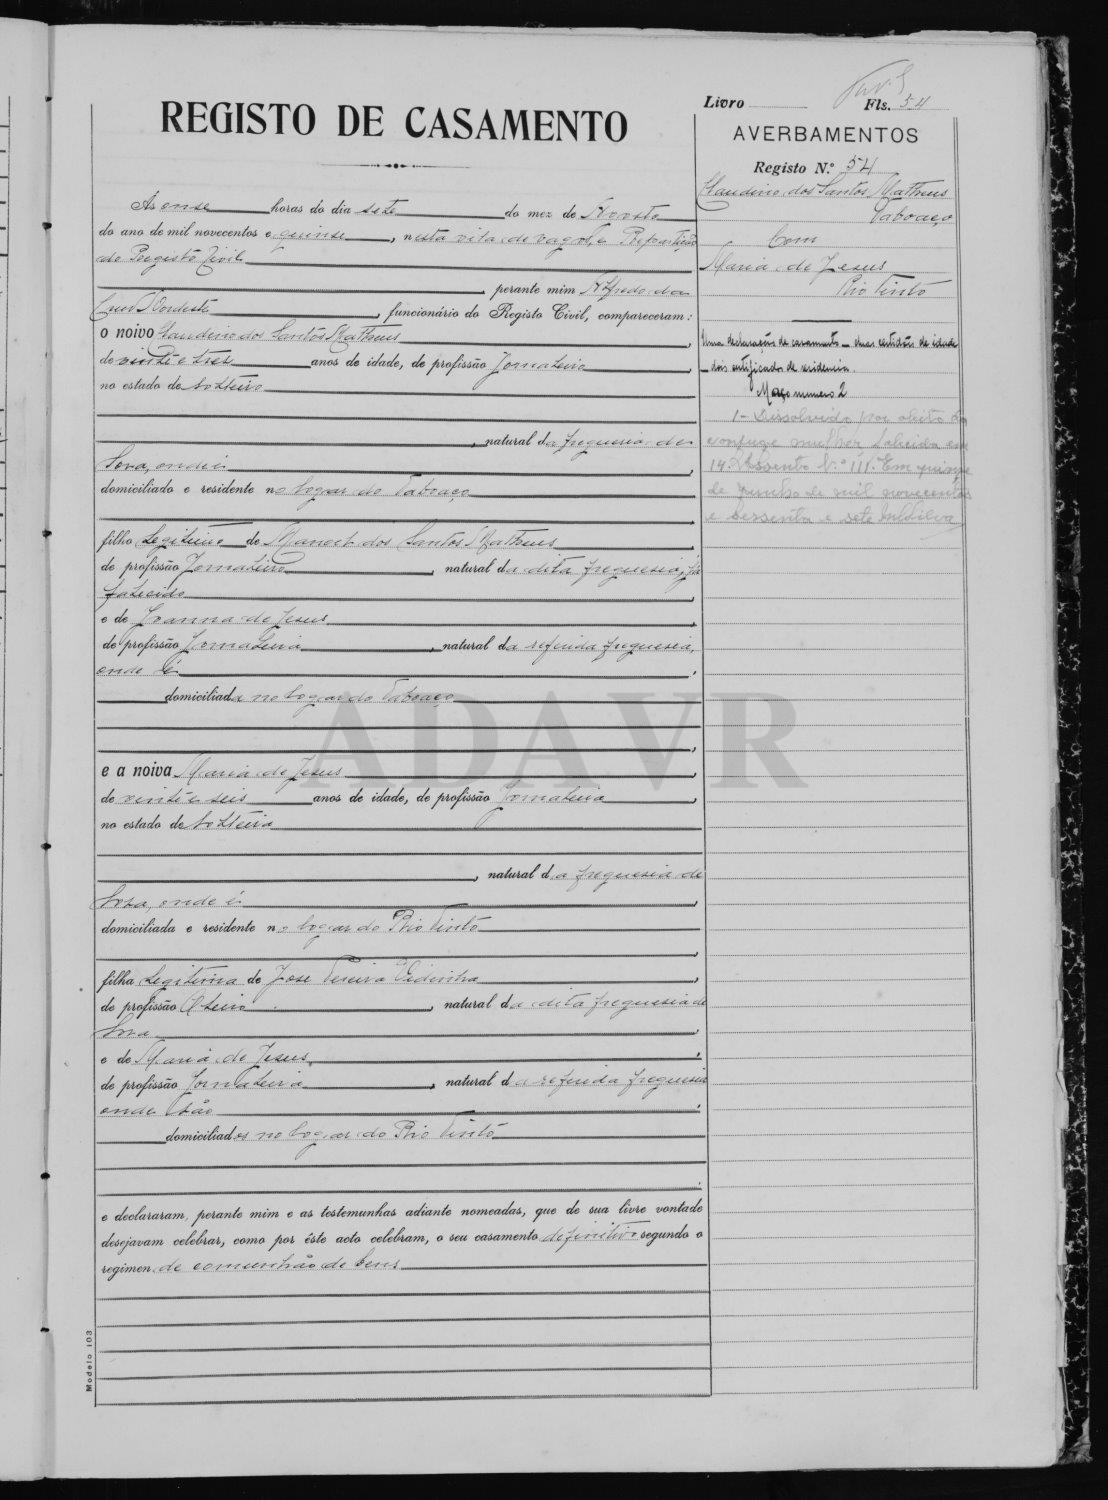 Livro Fls. 54
REGISTO DE CASAMENTO
AVERBAMENTOS
Registo N.º 54
Claudino dos Santos Matheus
Taboaço
Com
Maria de Jesus
Rio Tinto
Uma declaração de casamento - duas certidões de idade
- dois certificados de residencia.
Maço numero 2
1 - Dissolvido por obito do
conjuge mulher falecida em
14. Assento N.º 111. Em quinze
de junho de mil novecentos
e sessenta e sete
Ás onse horas do dia sete do mez de Agosto
do ano de mil novecentos e quinse, nesta vila de Vagos, e Repartição
do Registo Civil
perante mim Alfredo da
Cruz Nordeste, funcionário do Registo Civil, compareceram:
o noivo Claudino dos Santos Matheus,
de vinte e tres anos de idade, de profissão Jornaleiro,
no estado de solteiro
, natural da freguesia de
Soza, onde é,
domiciliado e residente no logar do Taboaço
filho legitimo de Manoel dos Santos Matheus,
de profissão Jornaleiro, natural da dita freguesia, já
falecido,
e de Joanna de Jesus,
de profissão Jornaleira, natural da referida freguesia,
onde é,
domiciliada no logar do Taboaço
,
e a noiva Maria de Jesus,
de vinte e seis anos de idade, de profissão Jornaleira,
no estado de solteira
, natural da freguesia de
Soza, onde é,
domiciliada e residente no logar do Rio Tinto
filha legitima de Jose Pereira,
de profissão Oleiro, natural da dita freguesia de
Soza,
e de Maria de Jesus,
de profissão Jornaleira, natural da referida freguesia
onde são,
domiciliados no logar do Rio Tinto
;
e declararam, perante mim e as testemunhas adiante nomeadas, que de sua livre vontade
desejavam celebrar, como por êste acto celebram, o seu casamento definitivo segundo o
regimen de comunhão de bens
Modelo 103
ADAVR